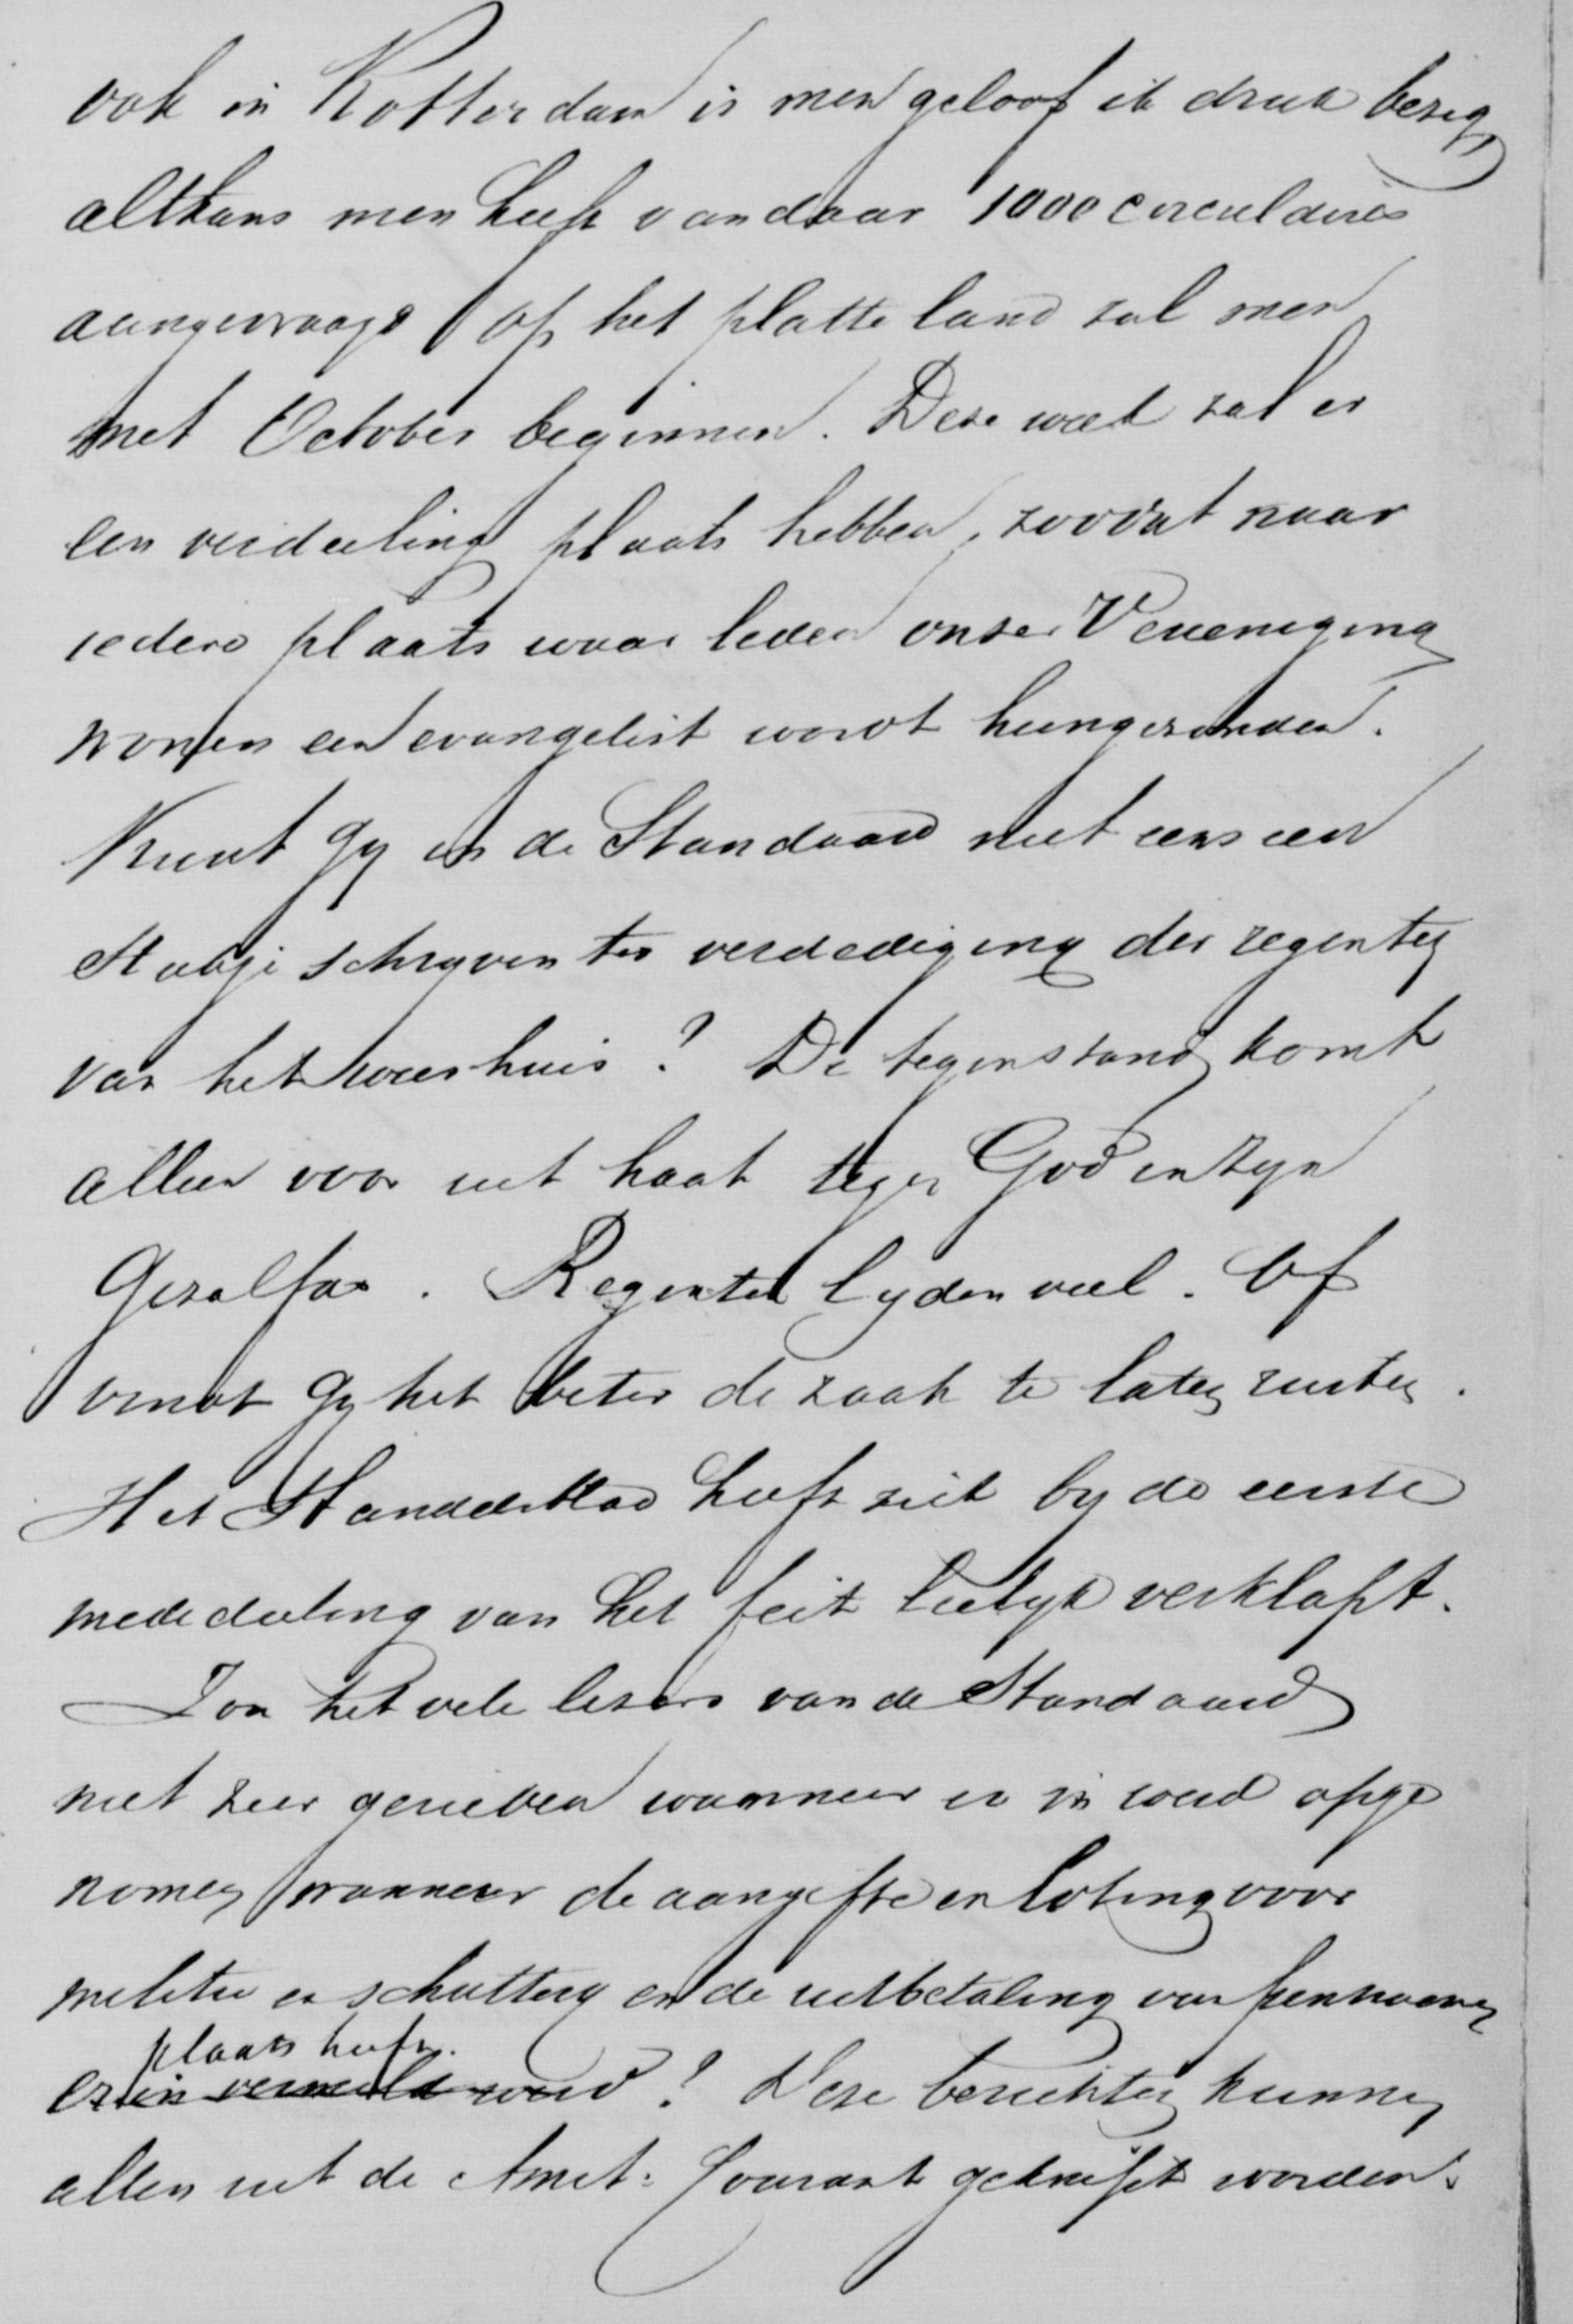 ook in Rotterdam is men geloof ik druk bezig
althans men heeft vandaar 1000 circulaires
aangevraagd op het platte land zal men
met October beginnen. Deze week zal er
een verdeeling plaats hebben, zoodat naar
iedere plaats waar leden onzer Vereeniging
wonen een evangelist wordt heengezonden.
Kunt gy in de Standaard niet eens een
Stukje schryven ter verdediging der regenten
van het weeshuis? De tegenstand komt
alleen voor uit haat tegen God en zyn
Gezalfde. Regenten lyden veel. Of
vindt gy het beter de zaak te laten rusten.
Het Handelsblad heeft zich by de eerste
mededeeling van het feit leelyk verklapt.
Zou het vele lezers van de Standaard
niet zeer gerieven wanneer er in werd opge
nomen wanneer de aangifte en loting voor
militie en schuttery en de uitbetaling van pensioenen
plaats heeft.
er in vermeld werd? Deze berichten kunnen
allen uit de Amst: Courant geknipt worden.